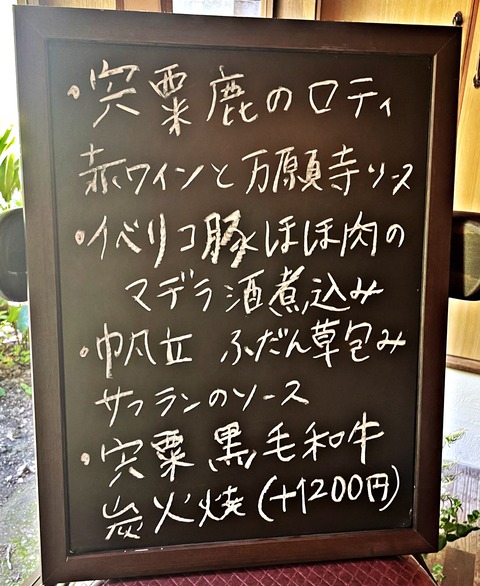 ・宍粟鹿のロティ
赤ワインと万願寺ソース
・イベリコ豚ほほ肉の
マデラ酒煮込み
・帆立 ふだん草包み
サフランのソース
・宍粟黒毛和牛
炭火焼(+1200円)